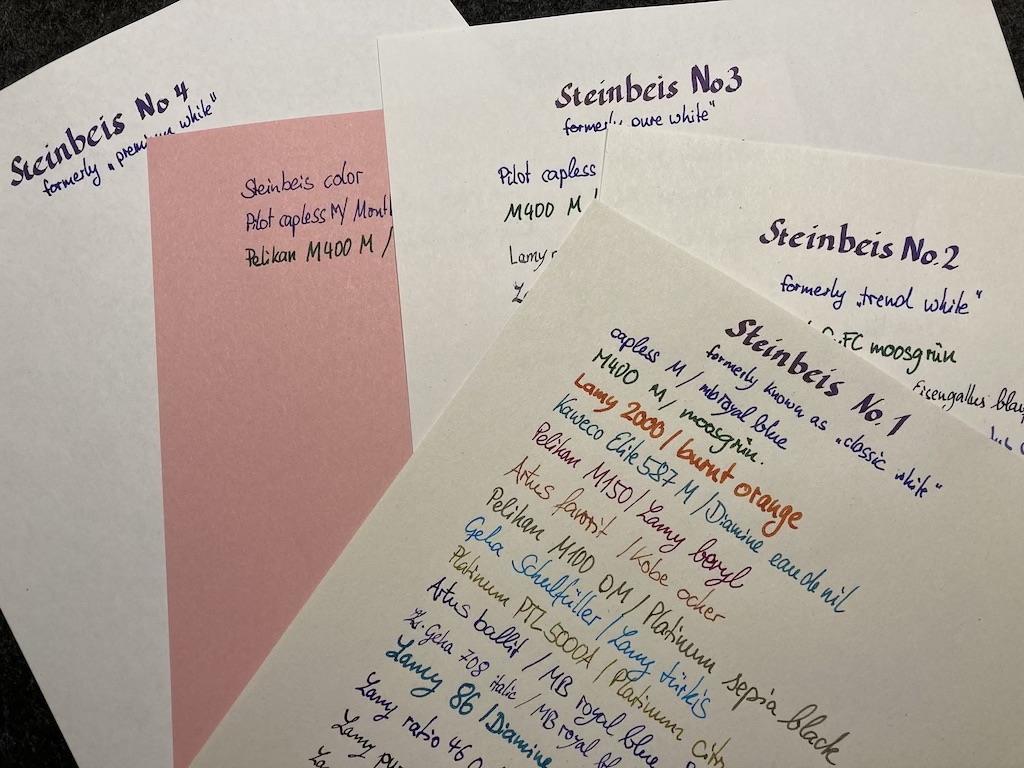 Steinbeis No 4
formerly „premium white"
Steinbeis color
Pilot capless M/ Mont
Pelikan M400 M /
Steinbeis No3
formerly pure white"
Pilot capless
M400 M /
Lamy
Steinbeis No.2
formerly „trend white"
FC moosgrün
Eisengallus
Steinbeis No.1
formerly known as „classic white"
capless M / mb royal blue
M400 M / moosgrün.
Lamy 2000 / burnt orange
Kaweco Elite 587 M / Diamine eau de nil
Pelikan M150 / Lamy beryl
Artus favorit / Kobe ocker
Pelikan M100 OM / Platinum sepia black
Geha Schulfüller / Lamy türkis
Platinum PTL 5000A / Platinum citr
Artus ballit / MB royal blue
Geha 708 italic / MB royal bl
Lamy 86 / Diamine
Lamy ratio 46
Lamy pu